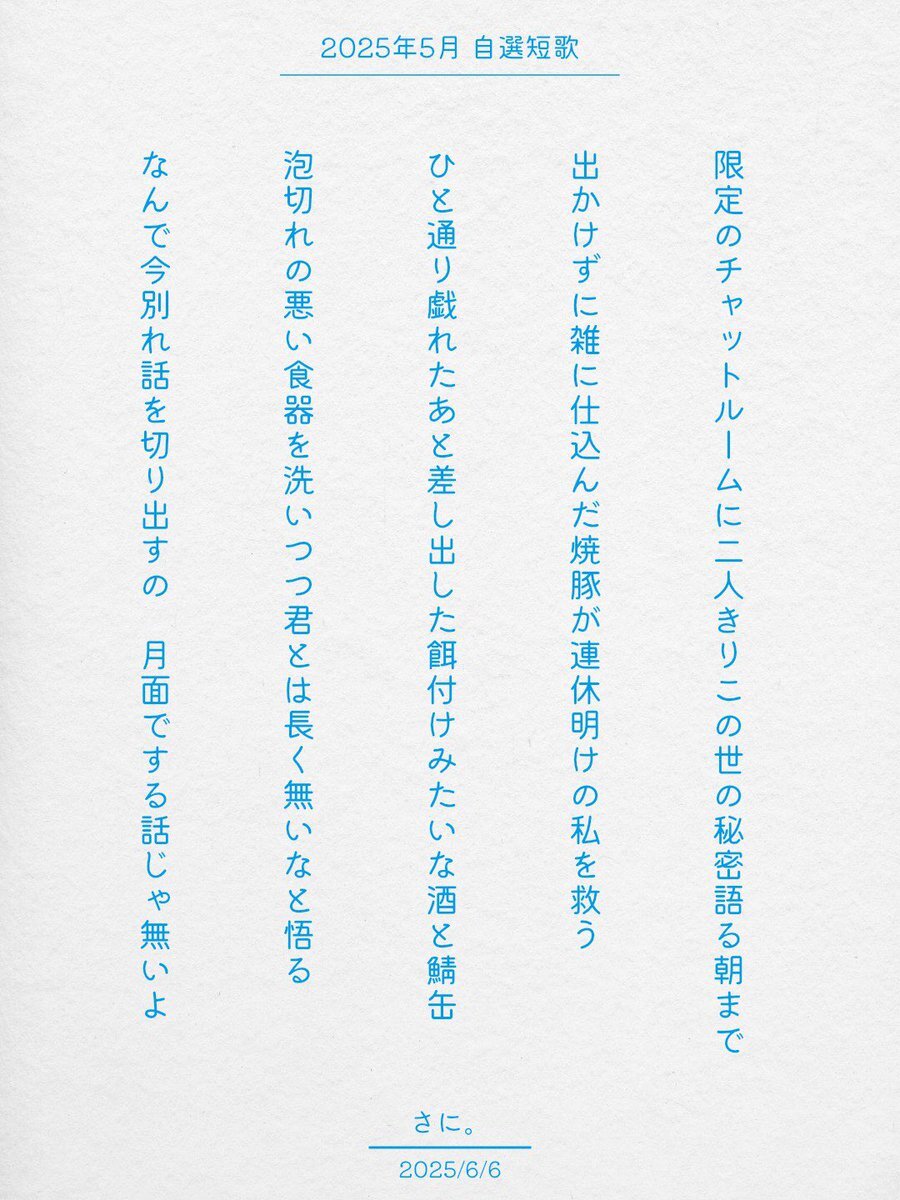 2025年5月 自選短歌
限定のチャットルームに二人きりこの世の秘密語る朝まで
出かけずに雑に仕込んだ焼豚が連休明けの私を救う
ひと通り戯れたあと差し出した餌付けみたいな酒と鯖缶
泡切れの悪い食器を洗いつつ君とは長く無いなと悟る
なんで今別れ話を切り出すの　月面でする話じゃ無いよ
さに。
2025/6/6